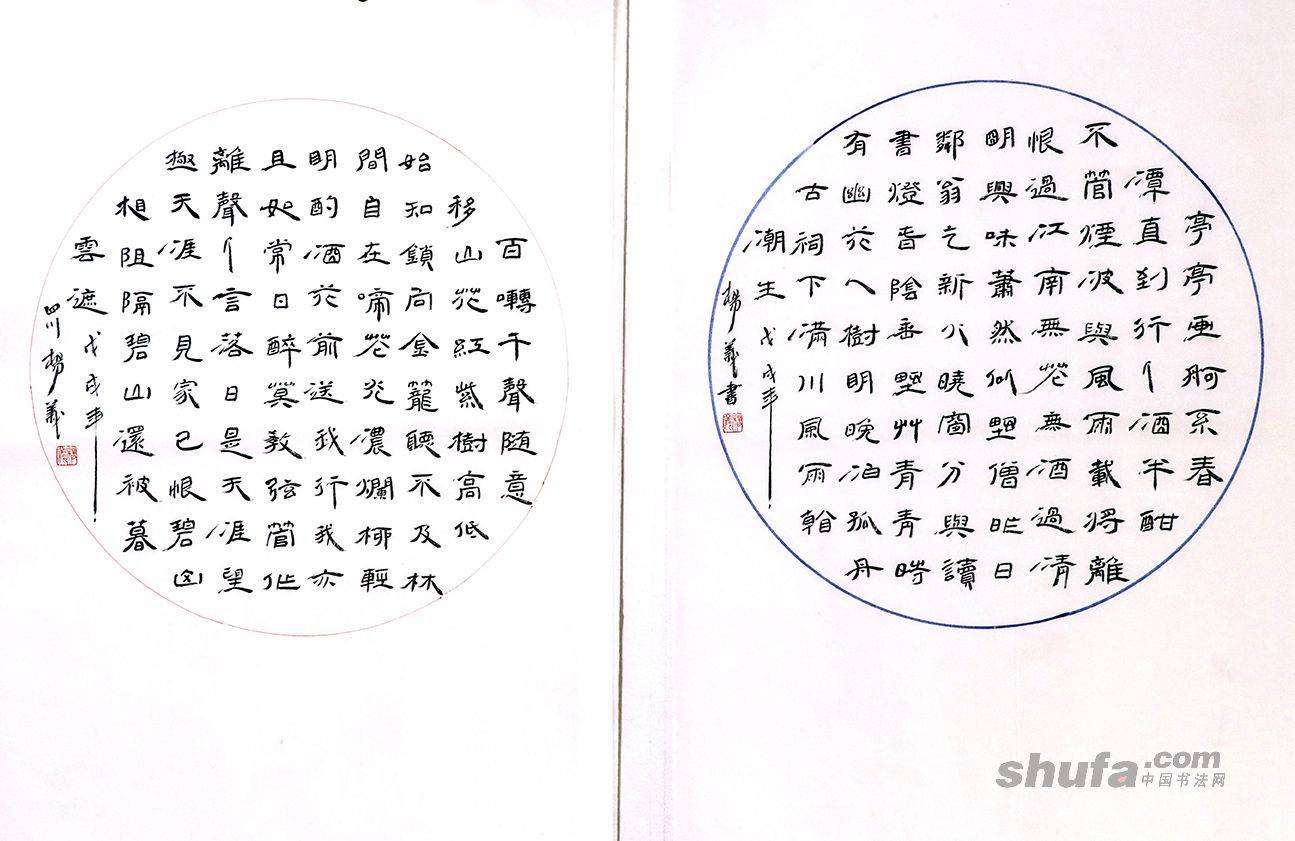 亭亭画舸系春
潭直到行人酒半酣
不管煙波與風雨載將離
恨過江南無花無酒過清
明興味蕭然似野僧昨日
鄰翁乞新火曉窗分與讀
書燈春陰垂野艸青青時
有幽花一樹明晚泊孤舟
古祠下滿川風雨看
潮生
戊戌年
楊義書
百囀千聲随意
移山花紅紫樹高低
始知鎖向金籠聽不及林
間自在啼花光濃爛柳輕
明酌酒花前送我行我亦
且如常日醉莫教弦管作
離聲人言落日是天涯望
極天涯不見家已恨碧山
相阻隔碧山還被暮
雲遮
戊戌年
四川楊義
shufa.com
中国书法网